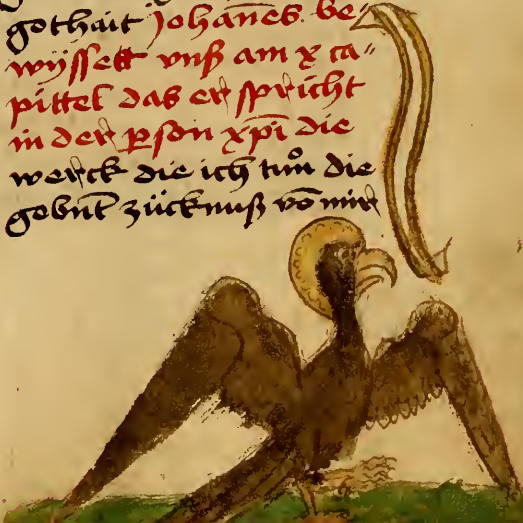 gothait Johan̄es be⸗
wÿsset vnß am x ca⸗
pittel das er spricht
in der p̱son xp̄i die
werck die ich tuͦn die
gebnt̄ zücknuß vō mir